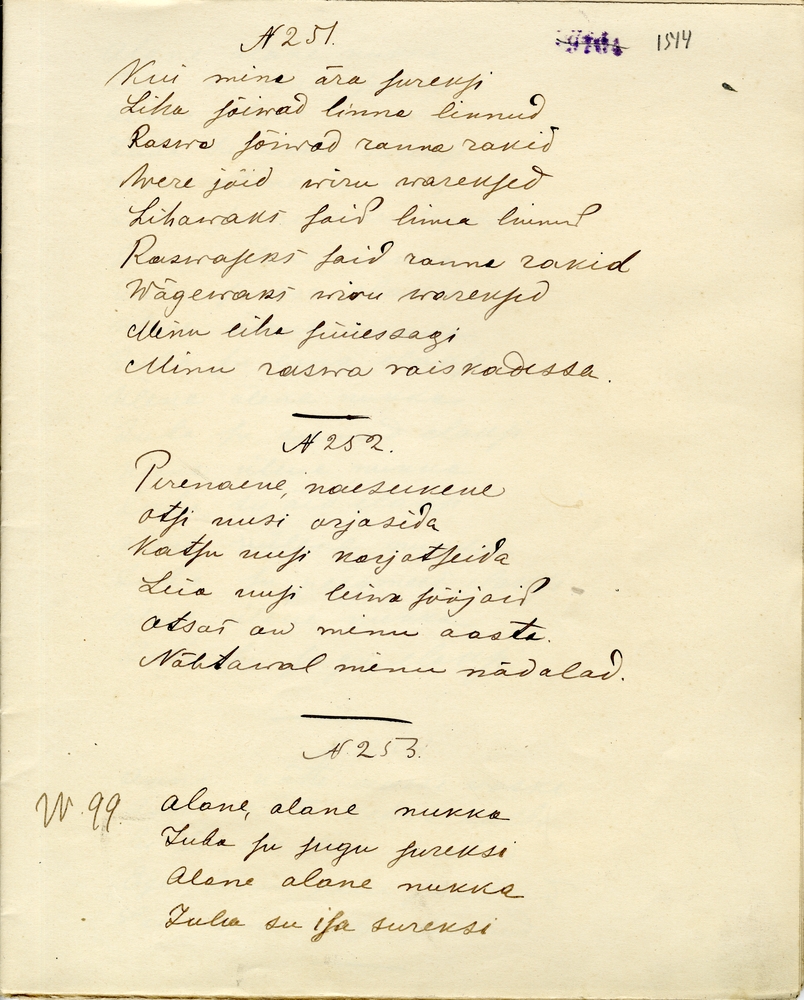 N 251.
1544
Kui mina ära sureksi
Liha sõiwad linna linnud
Raswa sõiwad ranna rakid
Were jõid wiru wareksed
Lihawaks said linna linnud
Raswaseks said ranna rakid
Wägewaks wiru wareksed
Minu liha süüessagi
Minu raswa raiskadessa.
N 252.
Perenaene, naesukene
Otsi uusi orjasida
Katsu uusi karjatseida
Leia uusi leiwa sööjaid
Otsas on minu aasta.
Nähtawal minu nädalad.
N. 253.
W. 99.
Alane, alane nukka
Juba su sugu sureksi
Alane alane nukka
Juba su isa sureksi